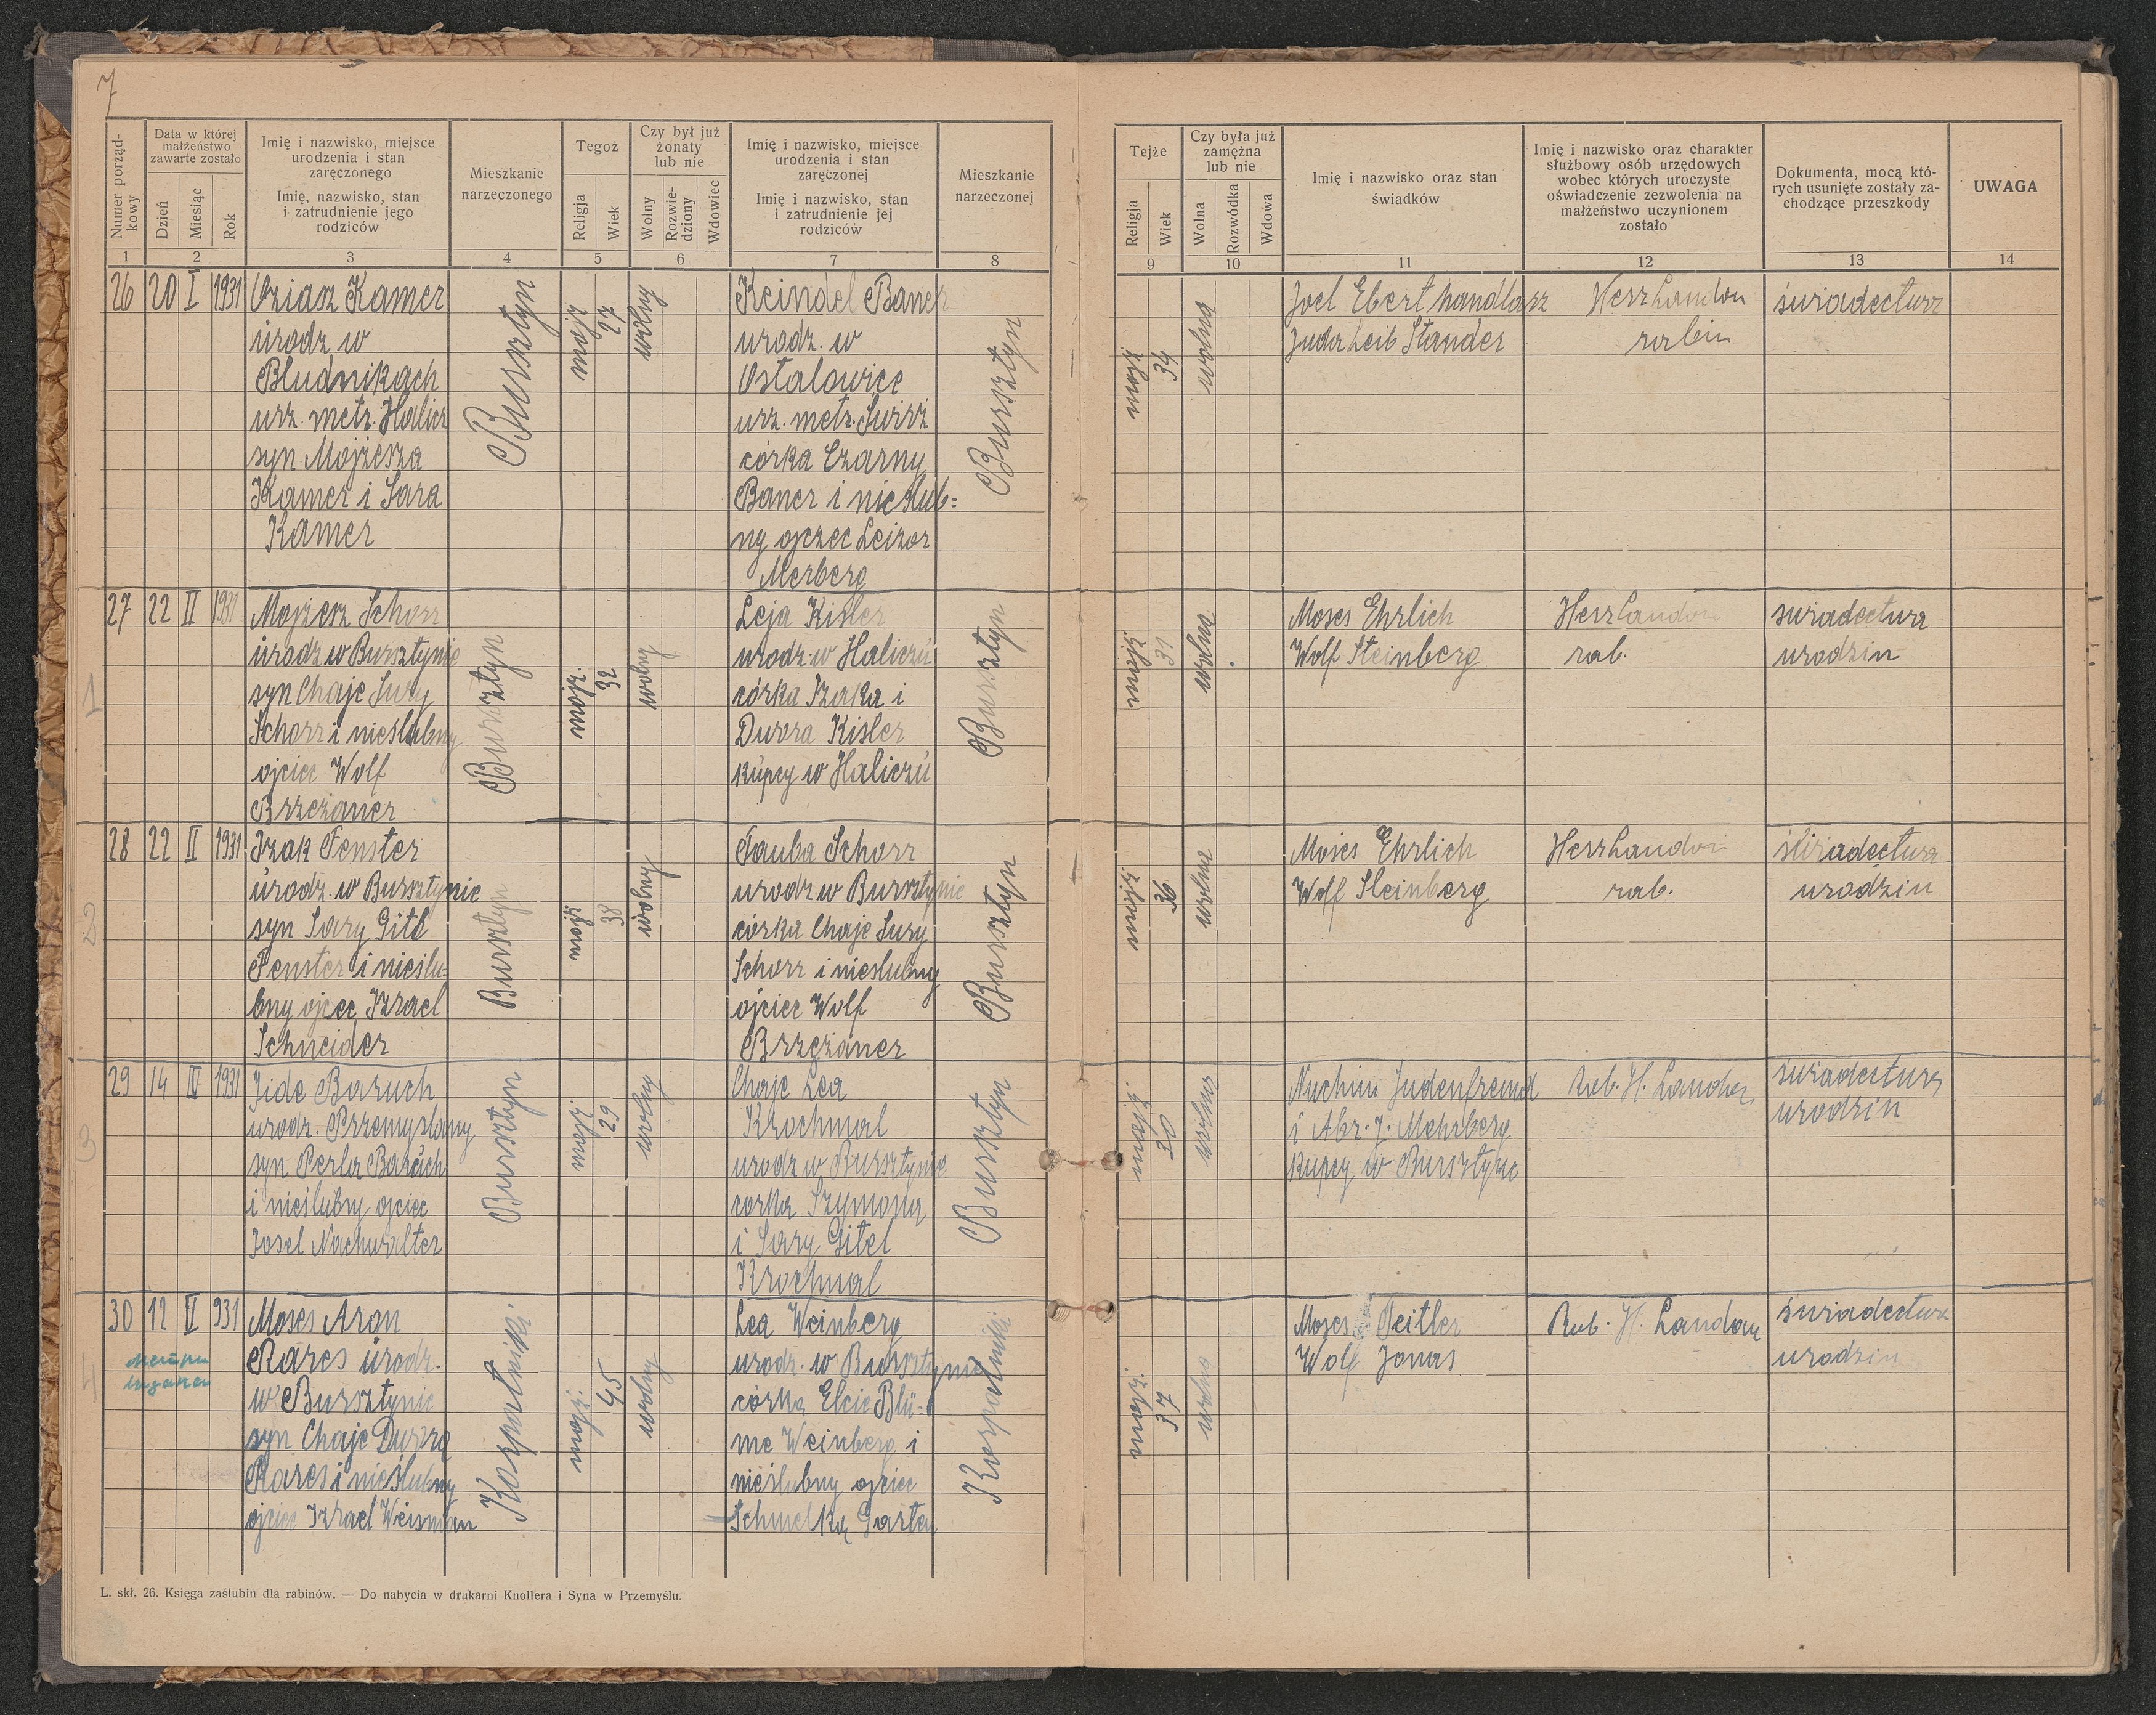 7
Numer porząd-
kowy
Data w której
małżeństwo
zawarte zostało
Dzień
Miesiąc
Rok
Imię i nazwisko, miejsce
urodzenia i stan
zaręczonego
Imię, nazwisko, stan
i zatrudnienie jego
rodziców
Mieszkanie
narzeczonego
Tegoż
Religja
Wiek
Czy był już
żonaty
lub nie
Wolny
Rozwie-
dziony
Wdowiec
Imię i nazwisko, miejsce
urodzenia i stan
zaręczonej
Imię i nazwisko, stan
i zatrudnienie jej
rodziców
Mieszkanie
narzeczonej
Tejże
Religja
Wiek
Czy była już
zamężna
lub nie
Wolna
Rozwódka
Wdowa
Imię i nazwisko oraz stan
świadków
Imię i nazwisko oraz charakter
służbowy osób urzędowych
wobec których uroczyste
oświadczenie zezwolenia na
małżeństwo uczynionem
zostało
Dokumenta, mocą któ-
rych usunięte zostały za-
chodzące przeszkody
UWAGA
1 2 3 4 5 6 7 8 9 10 11 12 13 14
26 20 I 1931
Oziasz Kamer
urodz w
Bludnikach
urz. metr. Halicz
syn Mojżesza
Kamer i Sara
Kamer
Bursztyn
mojż
27
wolny
Reindel Baner
urodz. w
Ostalowice
urz. metr. Świrż
córka Czarny
Baner i nieslub=
ny ojczec Leizor
Merberg
Bursztyn
mojż
34
wolna
Joel Ebert handlarz
Juda Leib Stander
Herz Landau
rabin
świadectwa
27 22 II 1931
Mojżesz Schorr
urodz w Bursztynie
syn Chaje Sury
Schorr i nieślubny
ojciec Wolf
Brzeżaner
Bursztyn
mojż.
32
wolny
Leja Kisler
urodz. w Haliczu
córka Izaka i
Dwora Kisler
kupcy w Haliczu
Bursztyn
mojż
31
wolna
Moses Ehrlich
Wolf Steinberg
Herz Landau
rab.
swiadectwa
urodzin
28 22 II 1931
Izak Fenster
urodz. w Bursztynie
syn Sary Gitl
Fenster i nieślu-
bny ojcec Izrael
Schneider
Bursztyn
mojż
38
wolny
Tauba Schorr
urodz w Bursztynie
córka Chaje Sury
Schorr i nieslubny
ojciec Wolf
Brzeżaner
Bursztyn
mojż
36
wolna
Moses Ehrlich
Wolf Steinberg
Herz Landau
rab.
świadectwa
urodzin
29 14 IV 1931
Jide Baruch
urodz. Przemyslany
syn Perla Baruch
i nieślubny ojciec
Josel Nachwalter
Bursztyn
mojż
29
wolny
Chaje Lea
Krochmal
urodz w Bursztynie
corka Szymona
i Sary Gitel
Krochmal
Bursztyn
mojż.
30
wolna
Nuchim Judenfreund
i Abr. J. Mehrberg
kupcy w Bursztynie
Rab. H. Landau
swiadectwa
urodzin
30 12 V 931
Moses Aron
Rares urodz.
w Bursztynie
syn Chaje Dwora
Rares i nieślubny
ojciec Izrael Weisman
mojż.
45
wolny
Lea Weinberg
urodz. w Bursztynie
córka Elcie Blü-
me Weinberg i
nieślubny ojciec
Schmelka Garten
mojż.
37
wolna
Moses Teitler
Wolf Jonas
Rab. H. Landau
swiadectwa
urodzin
1
2
3
4
L. skł. 26. Księga zaślubin dla rabinów. — Do nabycia w drukarni Knollera i Syna w Przemyślu.